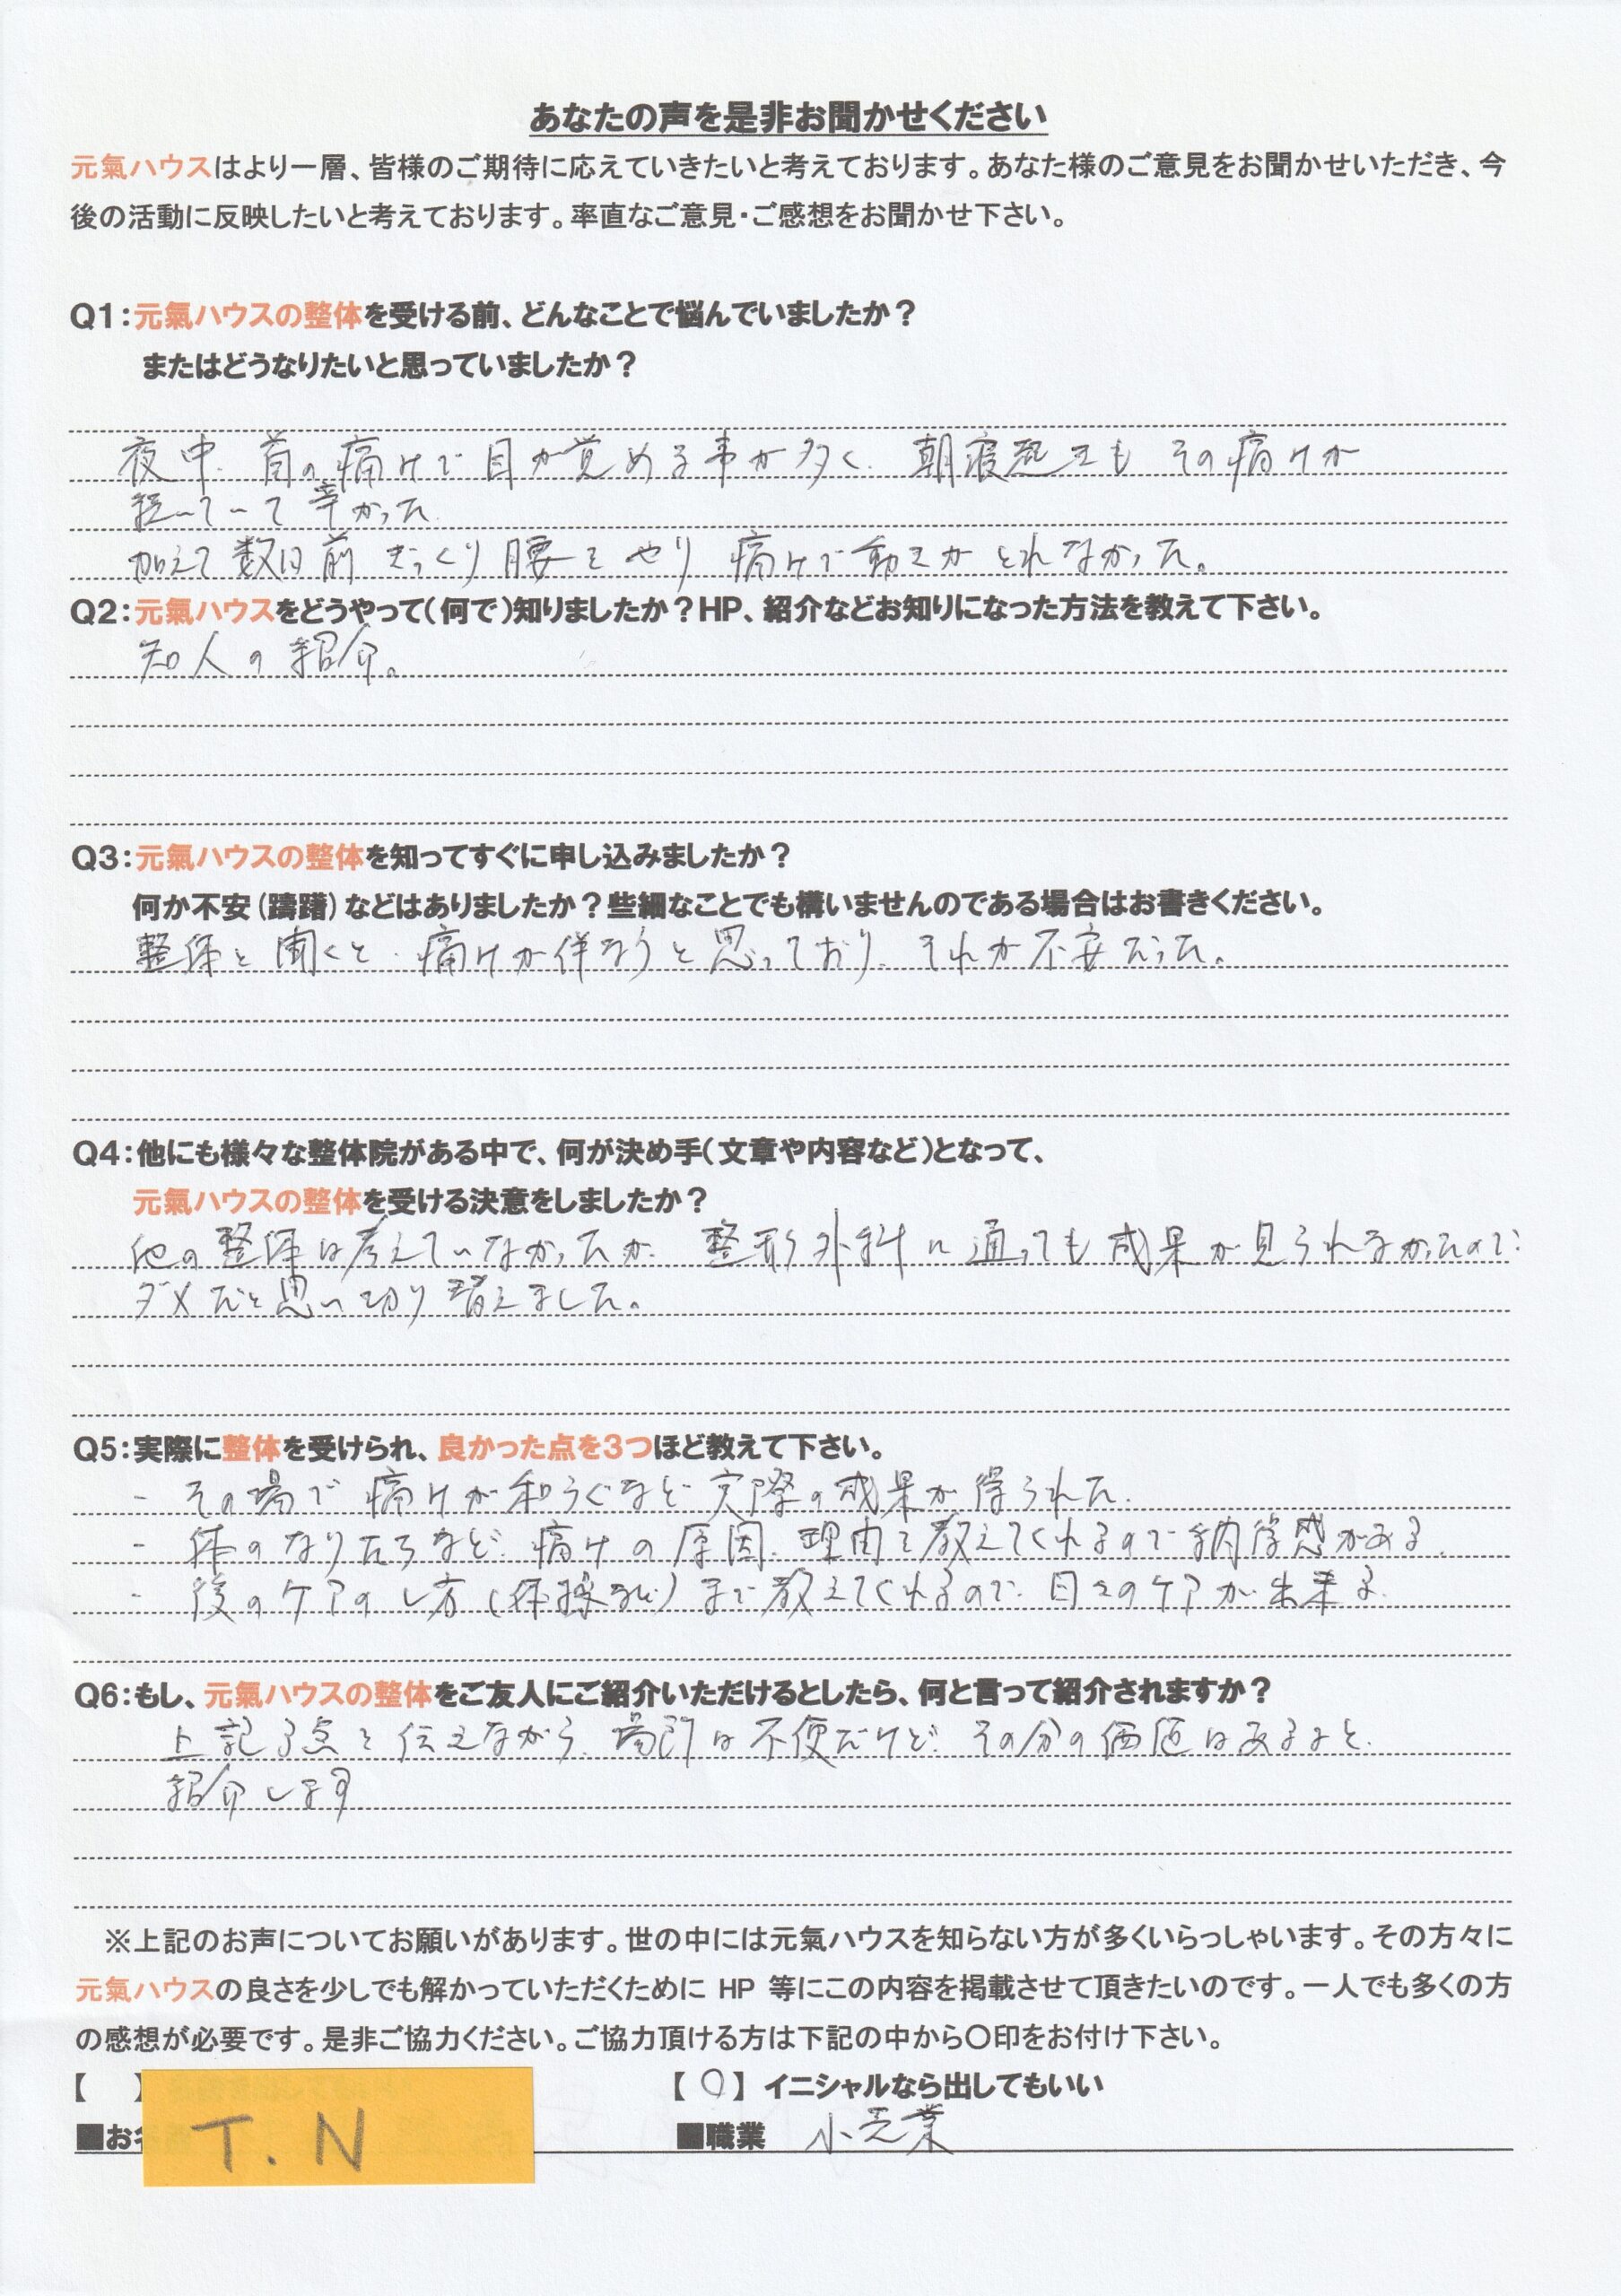 あなたの声を是非お聞かせください
元氣ハウスはより一層、皆様のご期待に応えていきたいと考えております。あなた様のご意見をお聞かせいただき、今
後の活動に反映したいと考えております。率直なご意見・ご感想をお聞かせ下さい。
Q1：元氣ハウスの整体を受ける前、どんなことで悩んでいましたか？
またはどうなりたいと思っていましたか？
夜中、首の痛みで目が覚める事が多く、朝寝起きもその痛みが
続いていて辛かった。
加えて数日前ぎっくり腰をやり痛みで動きがとれなかった。
Q2：元氣ハウスをどうやって（何で）知りましたか？HP、紹介などお知りになった方法を教えて下さい。
知人の紹介。
Q3：元氣ハウスの整体を知ってすぐに申し込みましたか？
何か不安（躊躇）などはありましたか？些細なことでも構いませんのである場合はお書きください。
整体と聞くと、痛みが伴なうと思っており、それが不安だった。
Q4：他にも様々な整体院がある中で、何が決め手（文章や内容など）となって、
元氣ハウスの整体を受ける決意をしましたか？
他の整体は考えていなかったが、整形外科に通っても成果が見られなかったので
ダメだと思い切り替えました。
Q5：実際に整体を受けられ、良かった点を3つほど教えて下さい。
- その場で痛みが和らぐなど実際の成果が得られた。
- 体のなりたちなど、痛みの原因、理由を教えてくれるので納得感がある。
- 後のケアのし方（体操など）まで教えてくれるので、日々のケアが出来る。
Q6：もし、元氣ハウスの整体をご友人にご紹介いただけるとしたら、何と言って紹介されますか？
上記3点を伝えながら、場所は不便だけど、その分の価値はあるよと、
紹介します
※上記のお声についてお願いがあります。世の中には元氣ハウスを知らない方が多くいらっしゃいます。その方々に
元氣ハウスの良さを少しでも解かっていただくために HP 等にこの内容を掲載させて頂きたいのです。一人でも多くの方
の感想が必要です。是非ご協力ください。ご協力頂ける方は下記の中から〇印をお付け下さい。
【 】 【 〇 】 イニシャルなら出してもいい
■お名 T.N ■職業 小売業